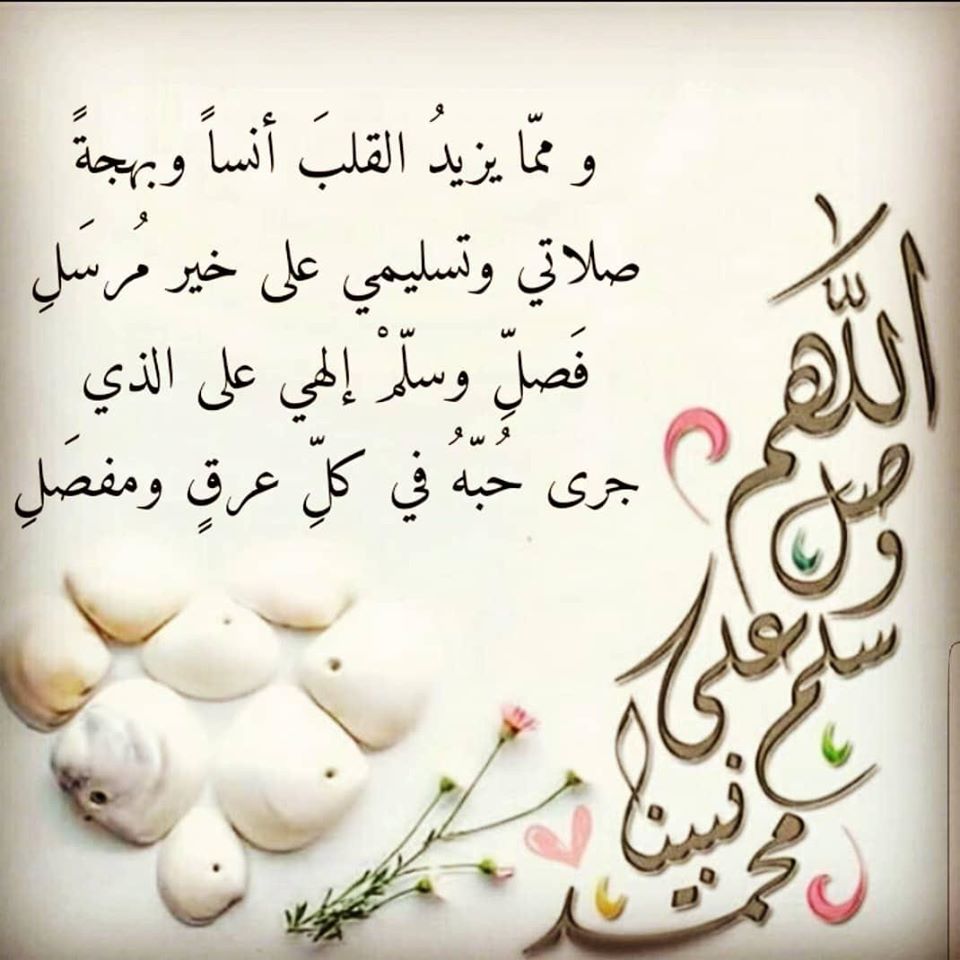 و ممّا يزيدُ القلبَ أنساً وبهجةً
صلاتي وتسليمي على خير مُرسَلِ
فَصلِّ وسلّمْ إلهي على الذي
جرى حُبّهُ في كلِّ عرقٍ ومفصَلِ
اللَّهم
صل
و
سلم
على
نبينا
محمد